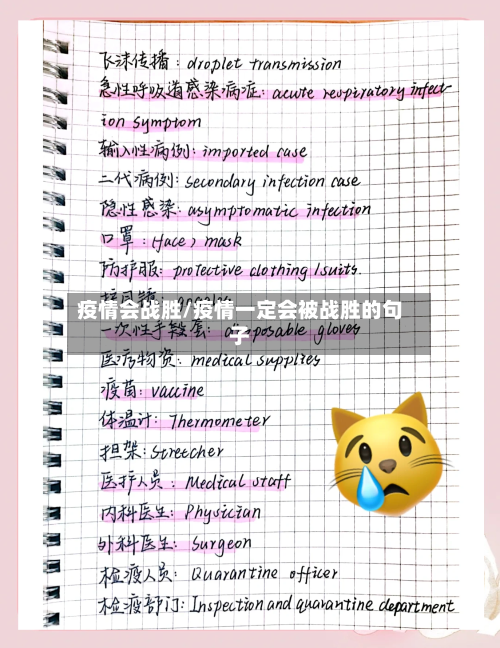 飞沫传播：droplet transmission
急性呼吸道感染病症：acute respiratory infect
ion symptom
输入性病例：imported case
二代病例：secondary infection case
隐性感染：asymptomatic infection
口罩：(face) mask
防护服：protective clothing/suits.
疫情会战胜/疫情一定会被战胜的句
子
一次性手套：disposable gloves
医疗物资：medical supplies
疫苗：vaccine
体温计：Thermometer
担架：Stretcher
医护人员：Medical staff
内科医生：Physician
外科医生：Surgeon
检疫人员：Quarantine officer
检疫部门：Inspection and quarantine department